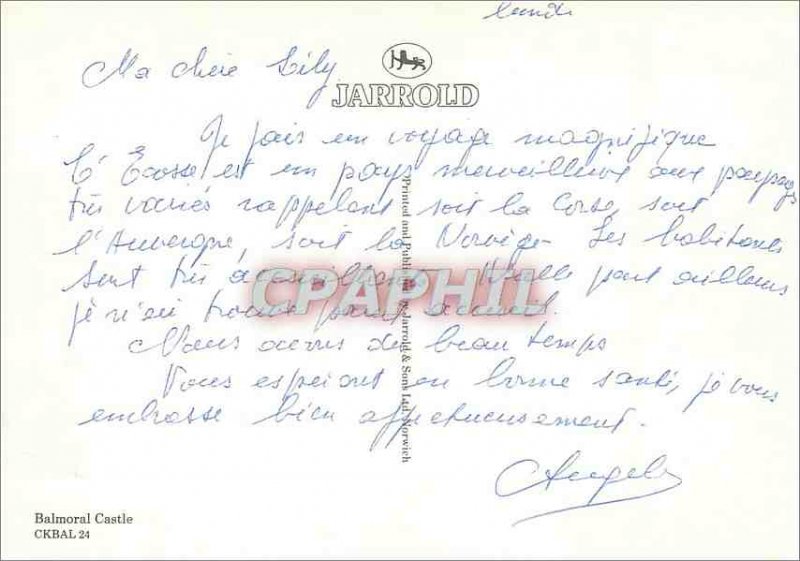 lundi
Ma chère Lily
JARROLD
Je fais un voyage magnifique
L'Ecosse est un pays merveilleux aux paysages
très variés rappelant soit la Corse, soit
l'Auvergne, soit la Norvège. Les habitants
sont très accueillants. Nulle part ailleurs
je n'ai trouvé pareil accueil.
Nous avons du beau temps
Vous espérant en bonne santé, je vous
embrasse bien affectueusement.
Angele
Printed and Published by Jarrold & Sons Ltd, Norwich
CPAPHIL
Balmoral Castle
CKBAL 24